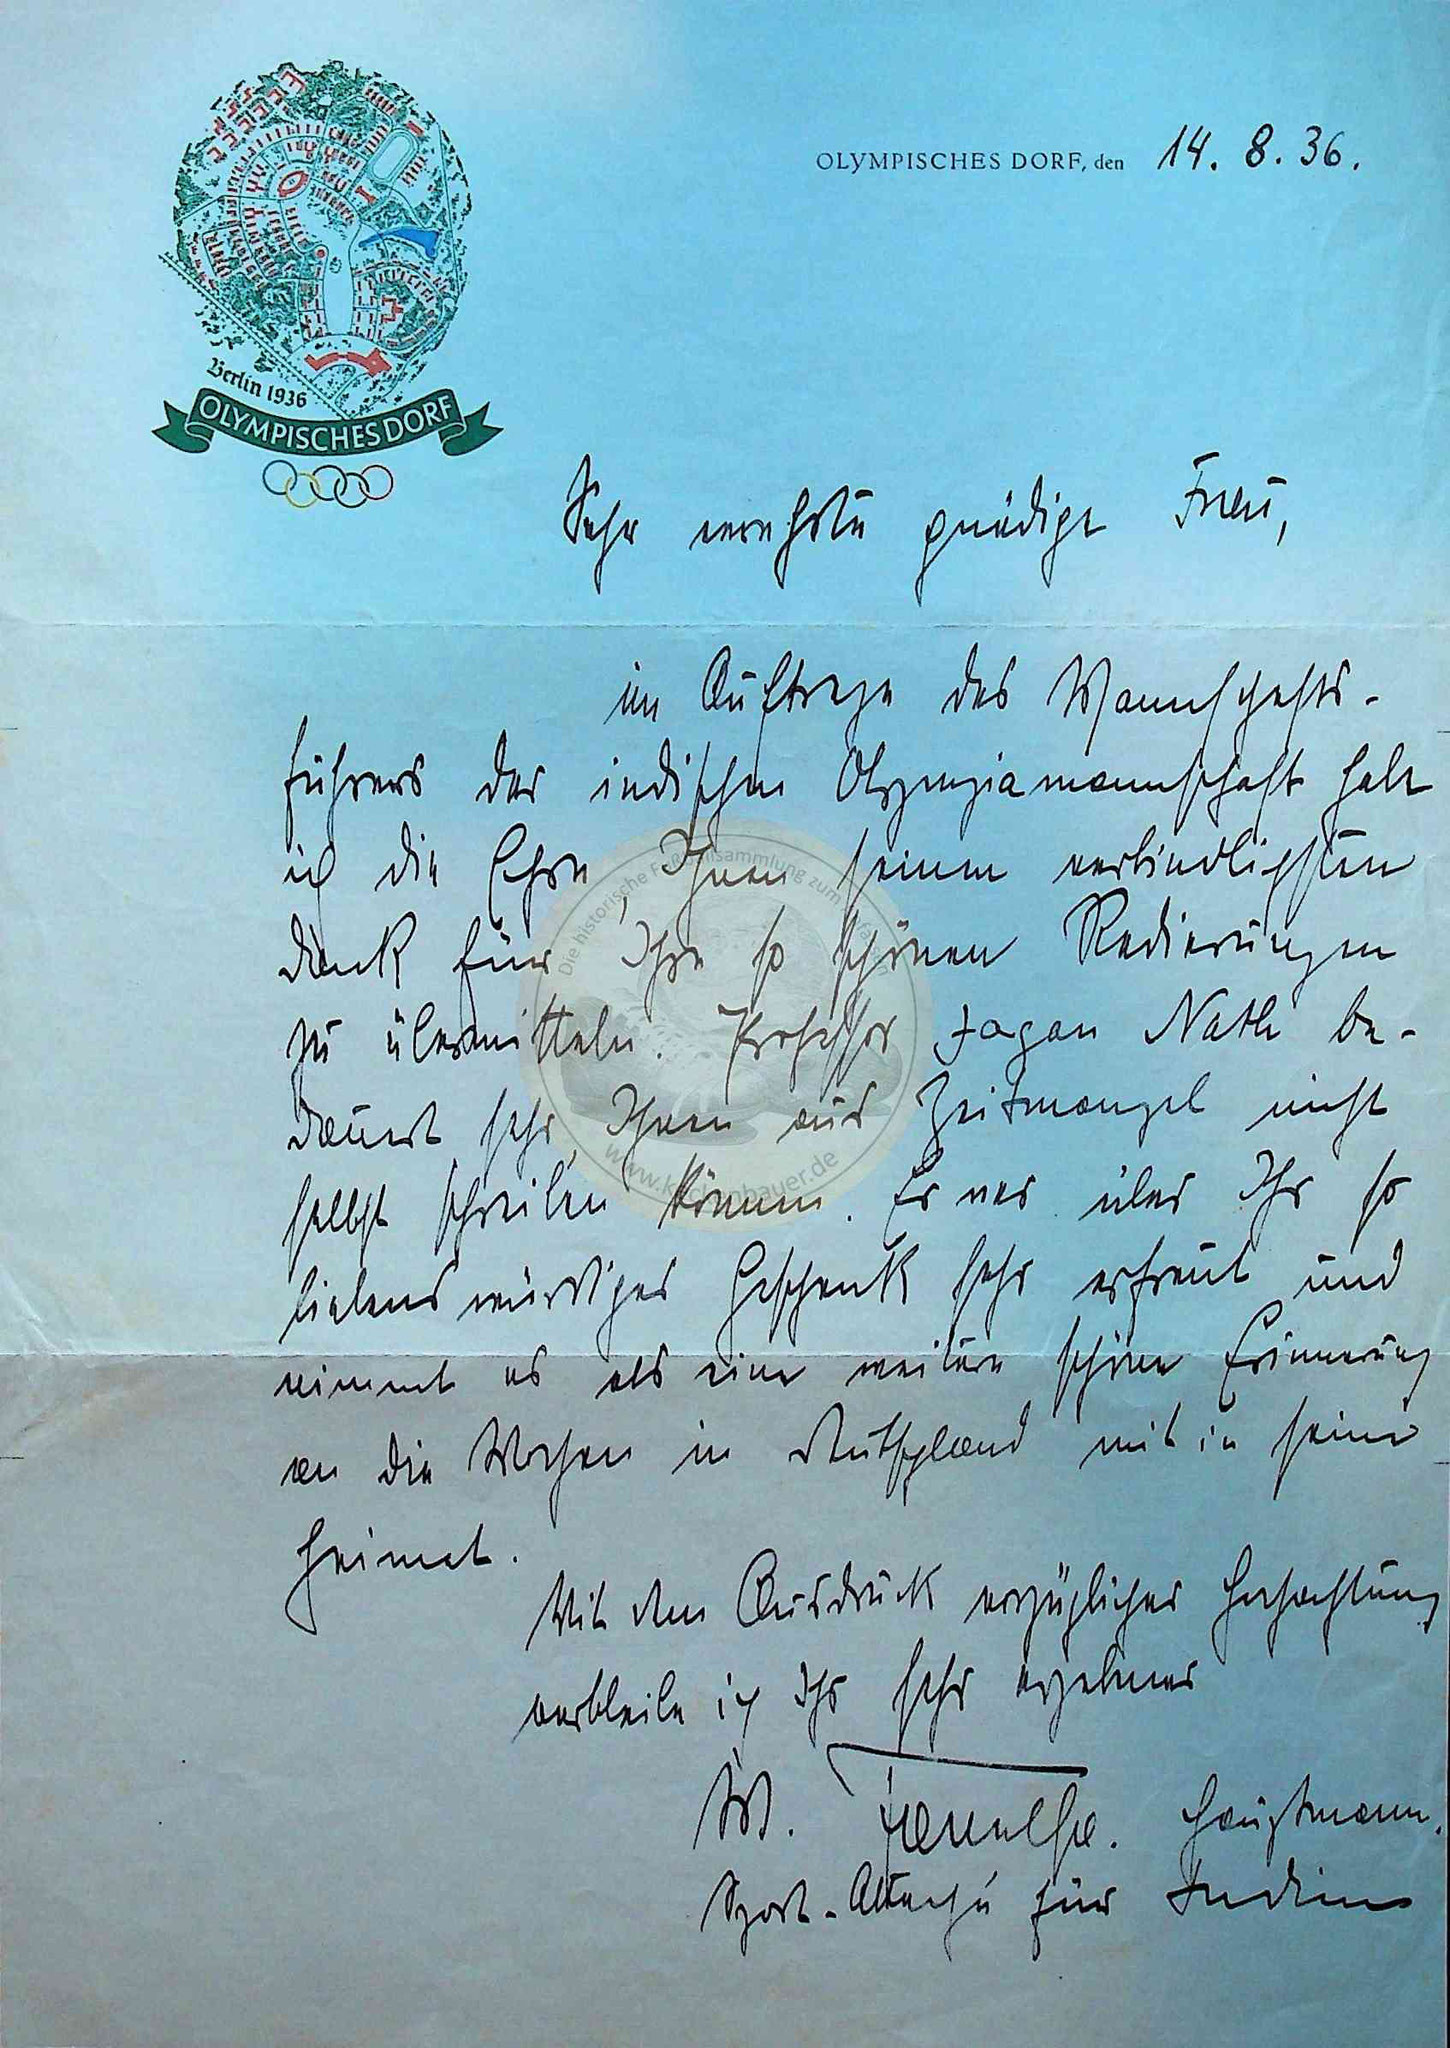 OLYMPISCHES DORF, den 14. 8. 36.
Berlin 1936
OLYMPISCHES DORF
Sehr verehrte gnädige Frau,
im Auftrage des Mannschafts-
führers der indischen Olympiamannschaft habe
ich die Ehre, Ihnen seinen verbindlichsten
Dank für Ihre so schönen Radierungen
zu übermitteln. Professor Jagan Nath be-
dauert sehr, Ihnen aus Zeitmangel nicht
selbst schreiben können. Er war über Ihr so
liebenswürdiges Geschenk sehr erfreut und
nimmt es als eine weitere schöne Erinnerung
an die Wochen in Deutschland mit in seine
Heimat.
Mit dem Ausdruck vorzüglicher Hochachtung
verbleibe ich Ihr sehr ergebener
W. Hauptmann.
Sport-Attaché für Indien
Die historische Fußballsammlung zum
www.kirschenbauer.de